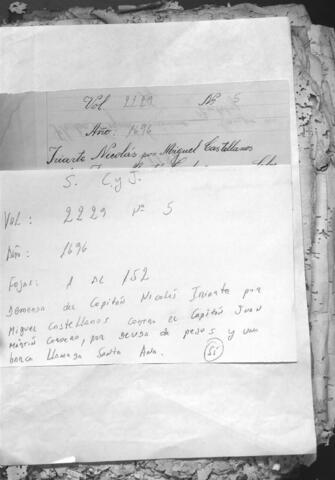 Vol. 2229 Nº 5
Año: 1696
Iriarte Nicolás por Miguel Castellanos
S. C. y J.
Vol: 2229 Nº 5
Año: 1696
Fojas: 1 al 152
Demanda del Capitán Nicolás Iriarte por
Miguel Castellanos contra el Capitán Juan
Martín Cordero, por deuda de pesos y una
barca llamada Santa Ana. Si